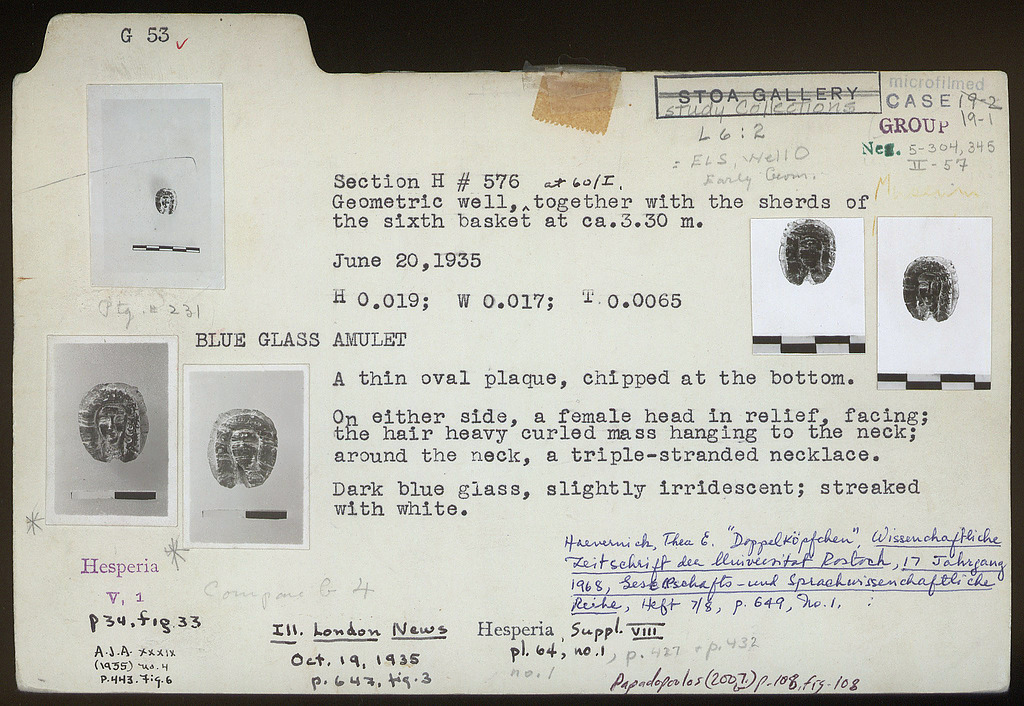 G 53
STOA GALLERY
study Collections
L 6 : 2
: ELS, Well O
Early Geom.
microfilmed
CASE 19-2
GROUP 19-1
Neg. 5-304, 345
II-57
Section H # 576 at 60/I.
Geometric well, together with the sherds of
the sixth basket at ca.3.30 m.
June 20,1935
H 0.019; W 0.017; T 0.0065
Ptg. # 231
BLUE GLASS AMULET
A thin oval plaque, chipped at the bottom.
On either side, a female head in relief, facing;
the hair heavy curled mass hanging to the neck;
around the neck, a triple-stranded necklace.
Dark blue glass, slightly irridescent; streaked
with white.
Haevernick, Thea E. "Doppelköpfchen", Wissenschaftliche
Zeitschrift der Universität Rostock, 17 Jahrgang
1968, Gesellschafts-und Sprachwissenschaftliche
Reihe, Heft 7/8, p. 649, No.1.
Hesperia
V, 1
p34, fig 33
A.J.A. xxxix
(1935) no. 4
P.443. Fig.6
Compare G 4
Ill. London News
Oct. 19, 1935
p. 647, fig. 3
Hesperia, Suppl. VIII
pl. 64, no. 1, p. 427 + p. 432
no. 1
Papadopoulos (2007) p. 108, fig. 108